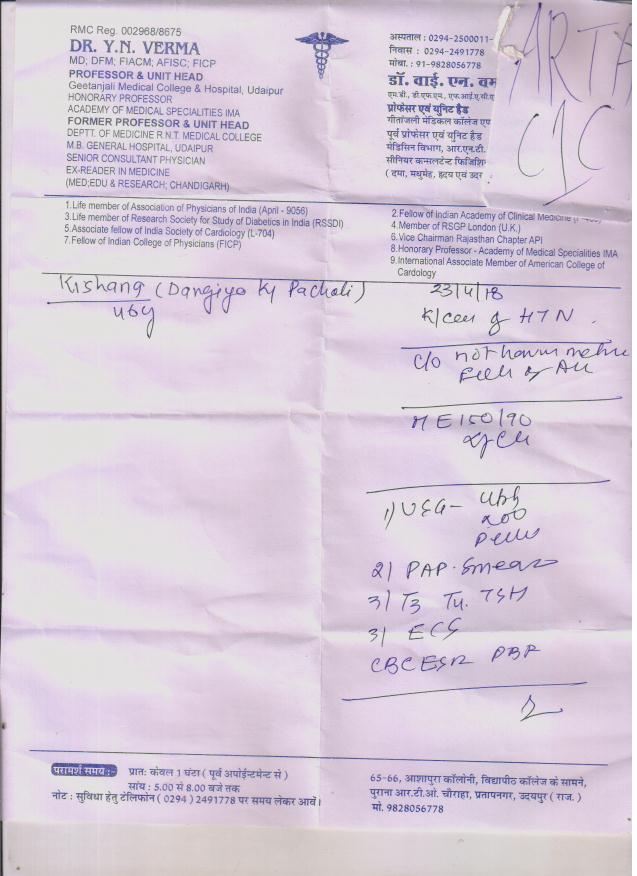 RMC Reg. 002968/8675
DR. Y.N. VERMA
MD; DFM; FIACM; AFISC; FICP
PROFESSOR & UNIT HEAD
Geetanjali Medical College & Hospital, Udaipur
HONORARY PROFESSOR
ACADEMY OF MEDICAL SPECIALITIES IMA
FORMER PROFESSOR & UNIT HEAD
DEPTT. OF MEDICINE R.N.T. MEDICAL COLLEGE
M.B. GENERAL HOSPITAL, UDAIPUR
SENIOR CONSULTANT PHYSICIAN
EX-READER IN MEDICINE
(MED;EDU & RESEARCH; CHANDIGARH)
अस्पताल : 0294-2500011-
निवास : 0294-2491778
मोबा. : 91-9828056778
डॉ. वाई. एन. वम
एम.डी., डी.एफ.एम., एफ.आई.ए.सी.ए
प्रोफेसर एवं यूनिट हैड
गीतांजली मेडिकल कॉलेज एण
पूर्व प्रोफेसर एवं यूनिट हैड
मेडिसिन विभाग, आर.एन.टी.
सीनियर कन्सलटेन्ट फिजिशि
( दमा, मधुमेह, हृदय एवं उदर
CIC
1.Life member of Association of Physicians of India (April - 9056)
3.Life member of Research Society for Study of Diabetics in India (RSSDI)
5.Associate fellow of India Society of Cardiology (L-704)
7.Fellow of Indian College of Physicians (FICP)
2.Fellow of Indian Academy of Clinical Medicine
4.Member of RSGP London (U.K.)
6.Vice Chairman Rajasthan Chapter API
8.Honorary Professor - Academy of Medical Specialities IMA
9.International Associate Member of American College of
Cardology
Kishang (Dangiyo Ky Pacholi)
23/4/18
of HTN.
c/o not
150/90
1) USG-
2) PAP. Smear
3) T3 T4. TSH
3) ECG
CBC ESR PBF
परामर्श समय :-
प्रातः केवल 1 घंटा ( पूर्व अपोईन्टमेन्ट से )
सांय : 5.00 से 8.00 बजे तक
नोट : सुविधा हेतु टेलिफोन ( 0294 ) 2491778 पर समय लेकर आवें।
65-66, आशापुरा कॉलोनी, विद्यापीठ कॉलेज के सामने,
पुराना आर.टी.ओ. चौराहा, प्रतापनगर, उदयपुर ( राज. )
मो. 9828056778